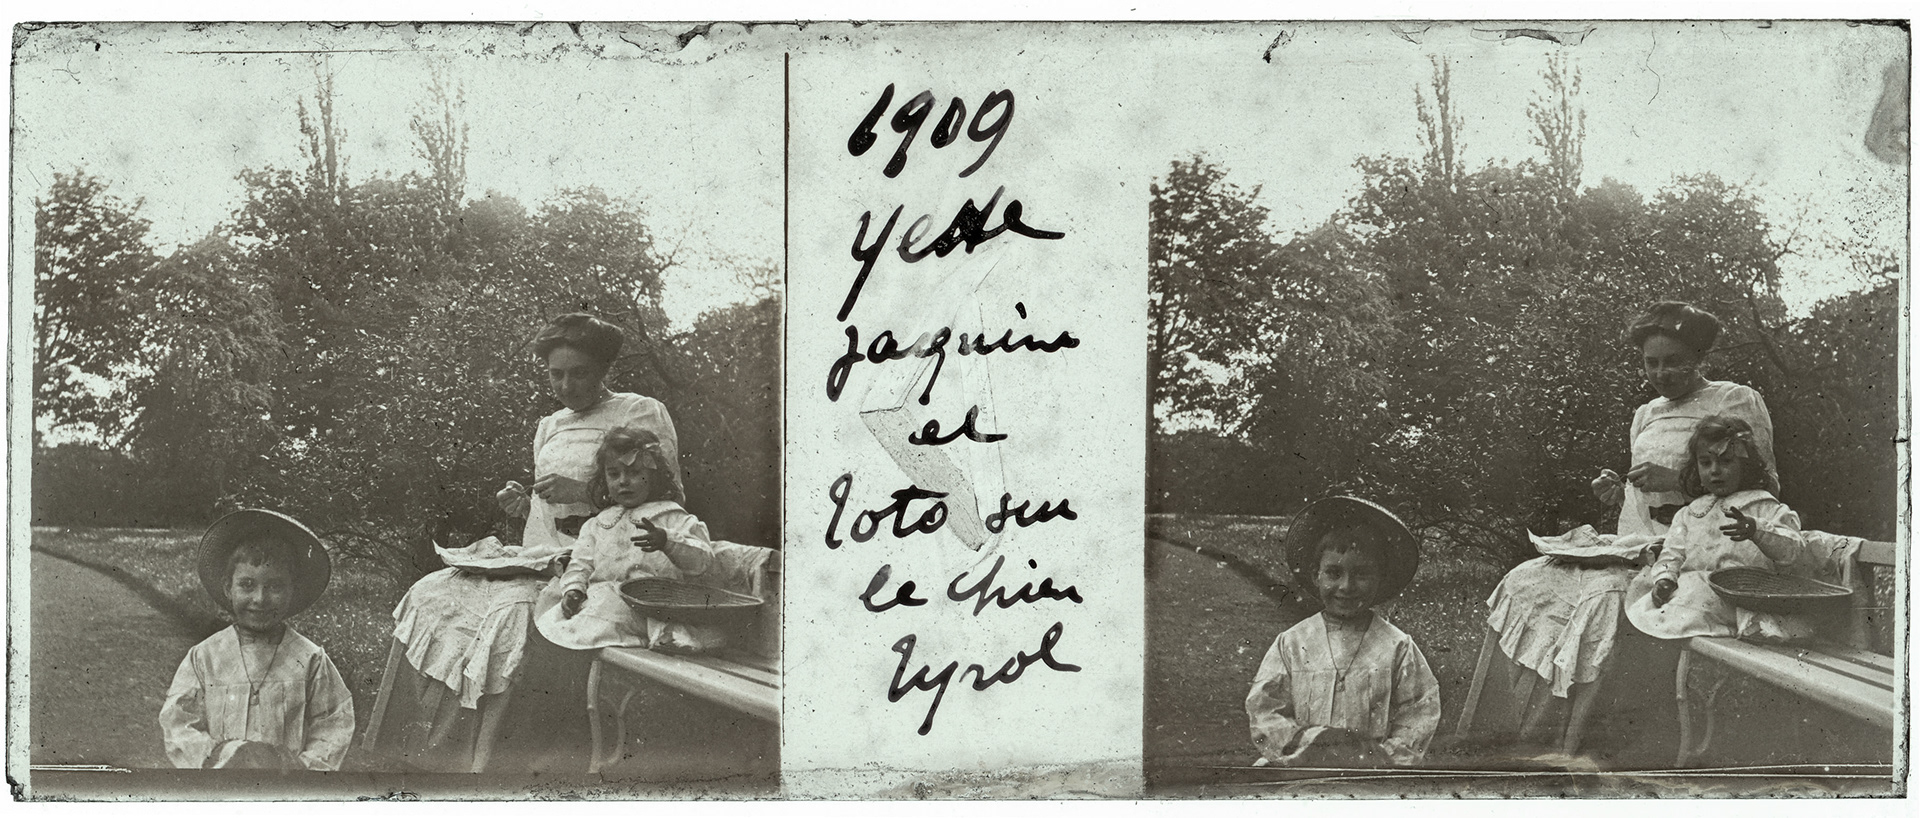 1909
Yette
Jaquine
et
Toto sur
le chien
Tyrol